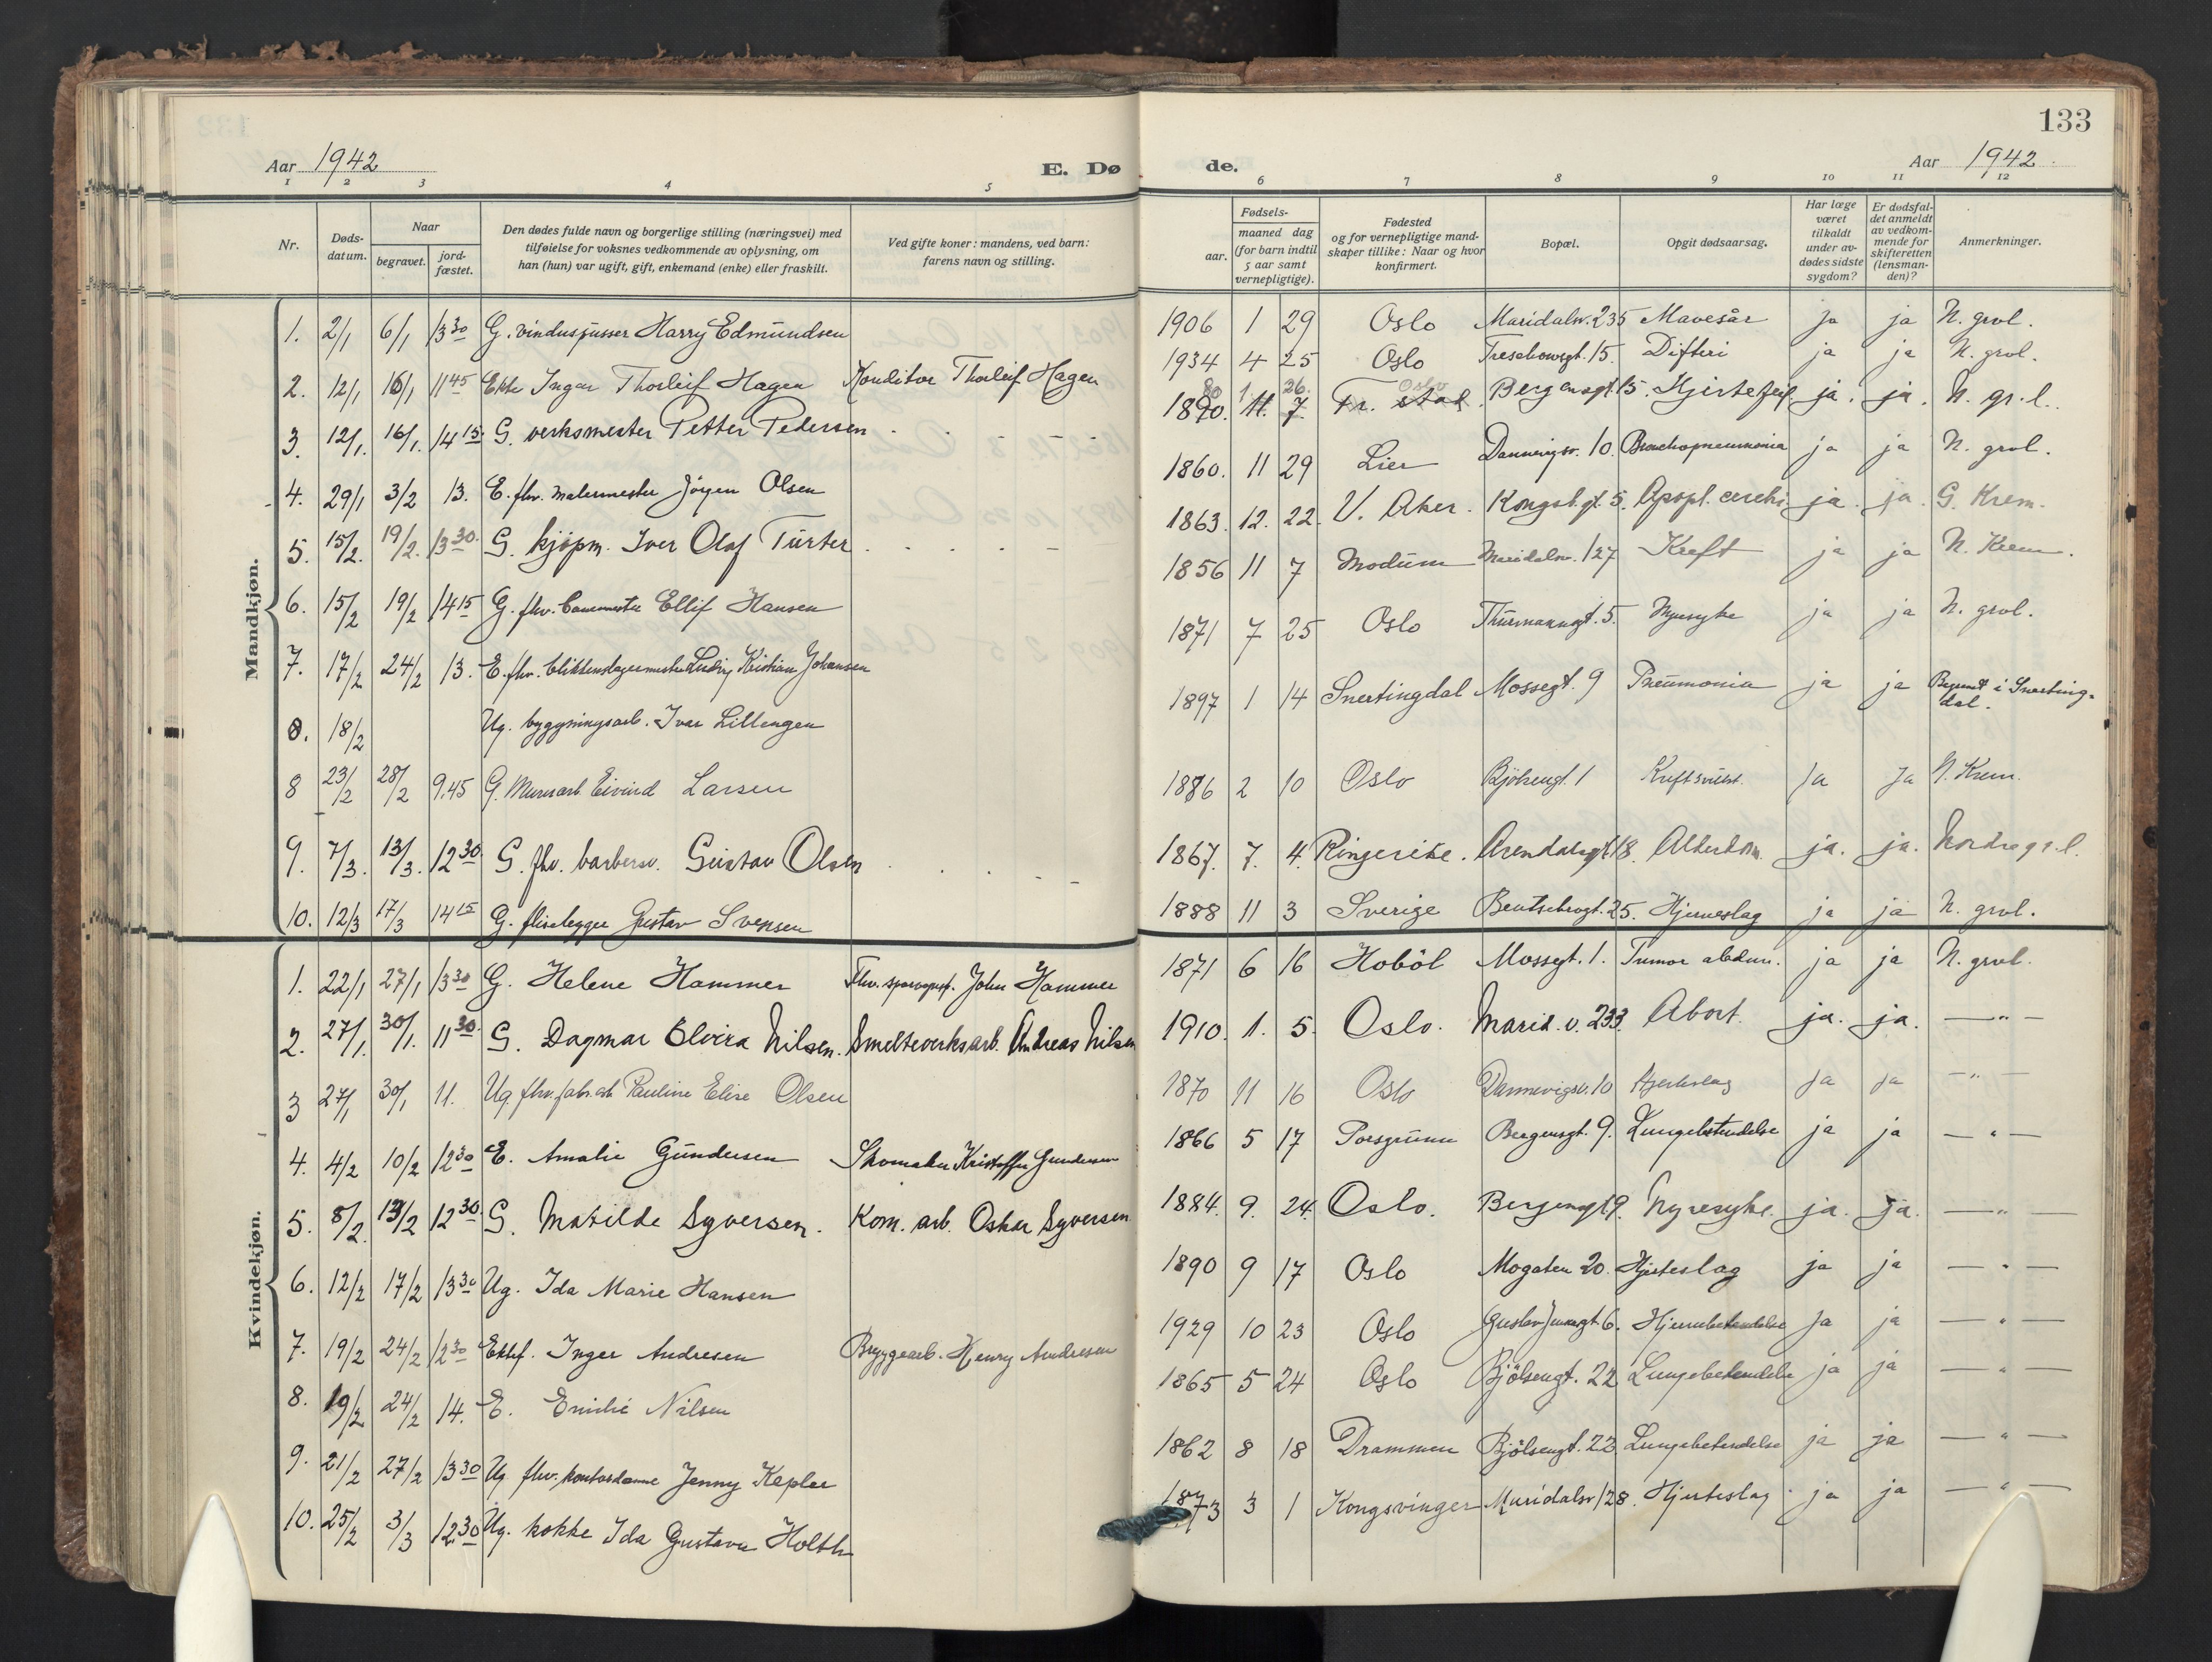 133
Aar 1942 E. Dø de. Aar 1942
1 2 3 4 5 6 7 8 9 10 11 12
Nr. Døds-datum. Naar begravet. jord-fæstet. Den dødes fulde navn og borgerlige stilling (næringsvei) med tilføielse for voksnes vedkommende av oplysning, om han (hun) var ugift, gift, enkemand (enke) eller fraskilt. Ved gifte koner: mandens, ved barn: farens navn og stilling. aar. Fødsels- maaned dag (for barn indtil 5 aar samt vernepligtige). Fødested og for vernepligtige mand-skaper tillike: Naar og hvor konfirmert. Bopæl. Opgit dødsaarsag. Har læge været tilkaldt under av-dødes sidste sygdom? Er dødsfal-det anmeldt av vedkom-mende for skifteretten (lensman-den)? Anmerkninger.
Mandkjøn.
1. 2/1 6/1 13 30 G. vinduspusser Harry Edmundsen 1906 1 29 Oslo Maridalsv. 235 Mavesår ja ja N. grvl.
2. 12/1 16/1 11 45 Ekte Ingar Thorleif Hagen Konditor Thorleif Hagen 1934 4 25 Oslo Treschowsgt. 15. Difteri ja ja N. grvl.
3. 12/1. 16/1. 14 15. G. verksmester Petter Pedersen 1890. 80 11. 1. 7 26. Fr. stad. Oslo Bergensgt. 15. Hjertefeil ja. ja. N. gr.l.
4. 29/1 3/2 13. E. fhv. malermester Jörgen Olsen 1860. 11 29 Lier Dannevigsv. 10. Bronchopneumonia ja ja N. grvl.
5. 15/2. 19/2. 13 30. G. kjøpm. Iver Olaf Turter 1863. 12. 22. V. Aker. Kongsb.gt. 5. Apopl. cerebri ja. ja. G. Krem.
6. 15/2 19/2 14 15 G. fhv. Ellif Hansen 1856 11 7 Modum Maridalsv. 127 Kreft ja ja N. Krem.
7. 17/2 24/2 13. E. fhv. blikkenslagermester Ludvig Kristian Johansen 1871 7 25 Oslo Thurmannsgt. 5. Nyresyke ja ja N. grvl.
0. 18/2 Ug. bygningsarb. Ivar Lillengen 1897 1 14 Snertingdal Mossegt. 9 Pneumonia ja ja Begravet i Snerting-dal.
8 23/2 28/2 9.45 G. Murerarb. Eivind Larsen 1886 2 10 Oslo Bjölsengt. 1 Kreftsvulst. Ja Ja N. Krem.
9. 7/3. 13/3. 12 30. G. fhv. barbersv. Gustav Olsen 1867. 7. 4. Ringerike. Arendalsgt. 18. Alderdom. ja. ja. Nordre gr.l.
10. 12/3 17/3 14 15 G. fliselegger Gustav Svensen 1888 11 3 Sverige Bentsebrogt. 25. Hjerneslag ja ja N. grvl.
Kvindekjøn.
1. 22/1 27/1 13 30 G. Helene Hammer Fhv. John Hammer 1871 6 16 Hoböl Mossegt. 1. Tumor abdom. ja ja N. grvl.
2. 27/1. 30/1. 11 30. G. Dagmar Elvira Nilsen. Smelteverksarb. Andreas Nilsen 1910. 1. 5. Oslo. Marid.v. 233. Abort. ja. ja. — " —
3 27/1 30/1 11. Ug. fhv. fabr.arb Pauline Elise Olsen 1870 11 16 Oslo Dannevigsv. 10 Hjerteslag ja ja — " —
4. 4/2 10/2 12 30 E. Amalie Gundersen Skomaker Kristoffer Gundersen 1866 5 17 Porsgrunn Bergensgt. 9. Lungebetendelse ja ja — " —
5. 8/2. 13/2 12 30. G. Matilde Syversen. Kom. arb. Oskar Syversen 1884. 9. 24. Oslo. Bergensgt. 9. Nyresyke. ja. ja. — " —
6. 12/2 17/2 13 30 Ug. Ida Marie Hansen 1890 9 17 Oslo Mogaten 20. Hjerteslag ja ja — " —
7. 19/2 24/2 12 30 Ektef. Inger Andresen Bryggearb. Henry Andresen 1929 10 23 Oslo Gustav Jensensgt. 6. Hjernebetendelse ja ja — " —
8. 19/2 24/2 14. E. Emilie Nilsen 1865 5 24 Oslo Bjölsengt. 22 Lungebetendelse ja ja — " —
9. 21/2 27/2 13 30 Ug. fhv. kontordame Jenny Kepler 1862 8 18 Drammen Bjölsengt. 22 Lungebetendelse ja ja — " —
10. 25/2 3/3 12 30 Ug. kokke Ida Gustava Holth 1873 3 1 Kongsvinger Maridalsv 128. Hjerteslag ja ja — " —